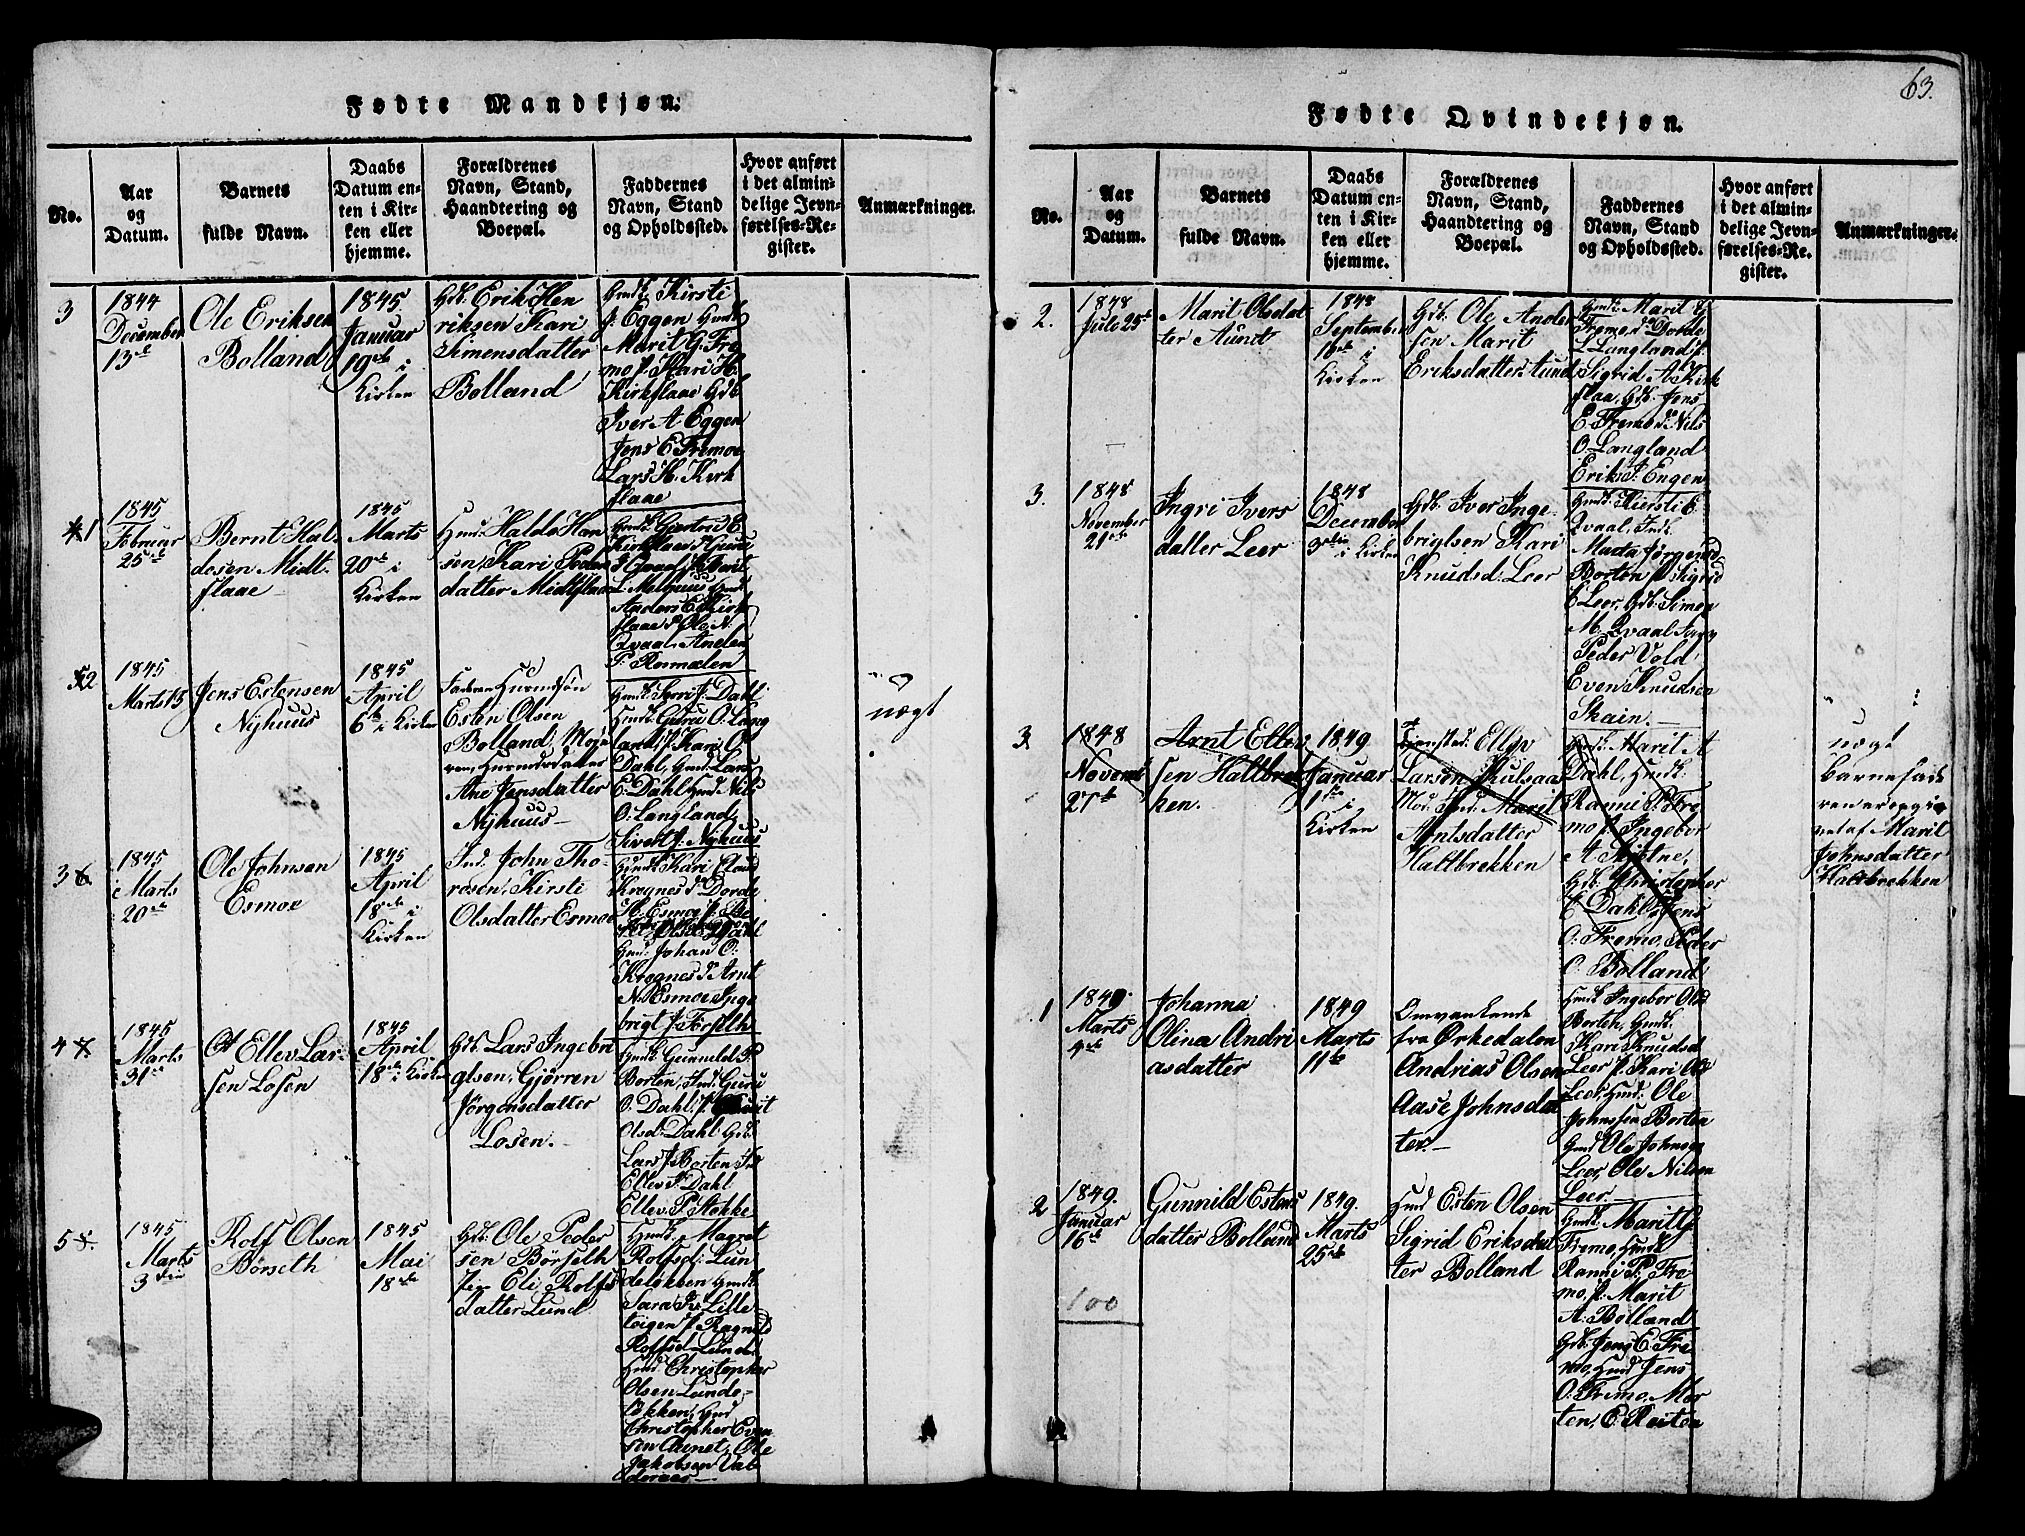 63.
Fødte Mandkjøn.
No.
Aar
og
Datum.
Barnets
fulde Navn.
Daabs
Datum en-
ten i Kir-
ken eller
hjemme.
Forældrenes
Navn, Stand,
Haandtering og
Boepæl.
Faddernes
Navn, Stand
og Opholdssted.
Hvor anført
i det almin-
delige Jevn-
førelses-Re-
gister.
Anmærkninger.
3
1844
December
13de
Ole Eriksen
Bolland
1845
Januar
19de i
Kirken
Gdb. Erik Hen
riksen Kari
Simensdatter
Bolland
Gmdk. Kirsti
J. Eggen Gmdk
Marit G. Fre
mo p. Kari H.
Kirkflaae Gdb.
Iver A Eggen
Jens E Fremoe
Lars H. Kirk
flaae
1
1845
Februar
25de
Bernt Hal-
desen Midt-
flaae
1845
Marts
20de i
Kirken
Huusm. Haldo Han
sen, Kari Peders
datter Midtflaae
Kirkflaae
L. Melhuus
Anders E Kirk
flaae Ole N.
Qvaal Anders
P. Rosmælen
2
1845
Marts 15
Jens Estensen
Nyhuus
1845
April
6te i Kirken
Faderen Huusmdsøn
Esten Olsen
Bolland, Mode
ren, Huusmdsdatter
Ane Jensdatter
Nyhuus
Dahl
Hmdk. Guru O. Lang
land, p. Kari O.
Dahl, Hmd. Lars
E. Dahl Hmd. Nils
O. Langland
Sivert J. Nyhuus
uægt
3
1845
Marts
20de
Ole Johnsen
Esmoe
1845
April
18de i
Kirken
Ind. John Tho-
resen, Kirsti
Olsdatter Esmoe
Krognes Dorde
H. Esmoe p. Be
Hmd. Johan O.
Krognes Arnt
N. Esmoe Inge
brigt J. Forseth
4
1845
Marts
31te
Ellev Lar-
sen Losen
1845
April
18de i Kirken
Gdb. Lars Ingebri
gtsen, Gjørren
Jørgensdatter
Losen.
Hmdk. Gunnild P
Borten, Ind. Guru
O. Dahl p. Marit
Olsd. Dahl Gdb.
Lars J. Borten Ind
Ellev P. Dahl
Ellev P. Stokke
5
1845
Marts
3die
Rolf Olsen
Børseth
1845
Mai
18de
Gdb. Ole Peder
sen Børseth
Pige Eli Rolfs
datter Lund
Hmdk. Magret
Rolfsd. Lun
deløkken Hmdk
Sara Lille
toigen p. Ragnild
Rolfsd. Lund
Hmd. Christopher
Olsen Lunde-
løkken, Hmd
Christopher Even
sen Aunet, Ole
Jakobsen Val
deraas
Fødte Qvindekjøn.
No.
Aar
og
Datum.
Barnets
fulde Navn.
Daabs
Datum en-
ten i Kir-
ken eller
hjemme.
Forældrenes
Navn, Stand,
Haandtering og
Boepæl.
Faddernes
Navn, Stand
og Opholdssted.
Hvor anført
i det almin-
delige Jevn-
førelses-Re-
gister.
Anmærkninger.
2.
1848
Juli 25de
Marit Olsdat
ter Aunet
1848
September
10de i
Kirken
Gdb. Ole Ander
sen Marit
Eriksdatter Aunet
Gmdk. Marit G
Fremo, do Dorde
L Langland p.
Sigrid A Kirk
flaa, Gdb. Jens
E. Fremo do Nils
O. Langland
Erik J. Engen
3.
1848
November
21de
Ingri Ivers
datter Leer
1848
December
3die i Kirken
Gdb. Iver Inge-
brigtsen Kari
Knudsd. Leer
Gmdk. Kiersti E
Qvaal, Ind.
Marta Jørgensd
Borten p. Sigrid
E Leer, Gdb. Simen
M. Qvaal
Peder Vold
Even Knudsen
Skain.
3
1848
Novemb
27de
Arnt Ellev
sen Haltbrek
ken.
1849
Januar
1ste i
Kirken
Tjenestd. Ellev
Larsen Kulsaas
Mod. Ind. Marit
Arntsdatter
Haltbrekken
Gmdk. Marit A
Dahl, Hmdk.
Ranni P. Fre
mo p. Ingebor
A
Gdb. Christopher
E Dahl, Jens
O. Fremo, Peder
O. Bolland
uægt
Barnefade
ren er opgi
vet af Marit
Johnsdatter
Haltbrekken
1
1849.
Marts
4de
Johanna
Olina Andri
asdatter
1849
Marts
11te
Omvankende
fra Ørkedalen
Andrias Olsen
Aase Johnsdat
ter.
Hmdk Ingebor Olsd
Borten, Gmdk.
Kari Knudsd
Leer p. Kari Olsd
Leer, Hmd. Ole
Johnsen Borten
Gmd Ole Johnsen
Leer, Ole Nilsen
Leer
2
1849.
Januar
16de
Gunnild Estens
datter Bolland
1849.
Marts
25de
Hmd Esten Olsen
Sigrid Eriksdat
ter Bolland
Gmdk. Marit G
Fremo, Hmdk
Ranni P. Fre
mo, p. Marit
A. Bolland
Gdb. Jens E. Fre
mo, Hmd Jens
O. Fremo, Mor
ten, E. Rosten
100